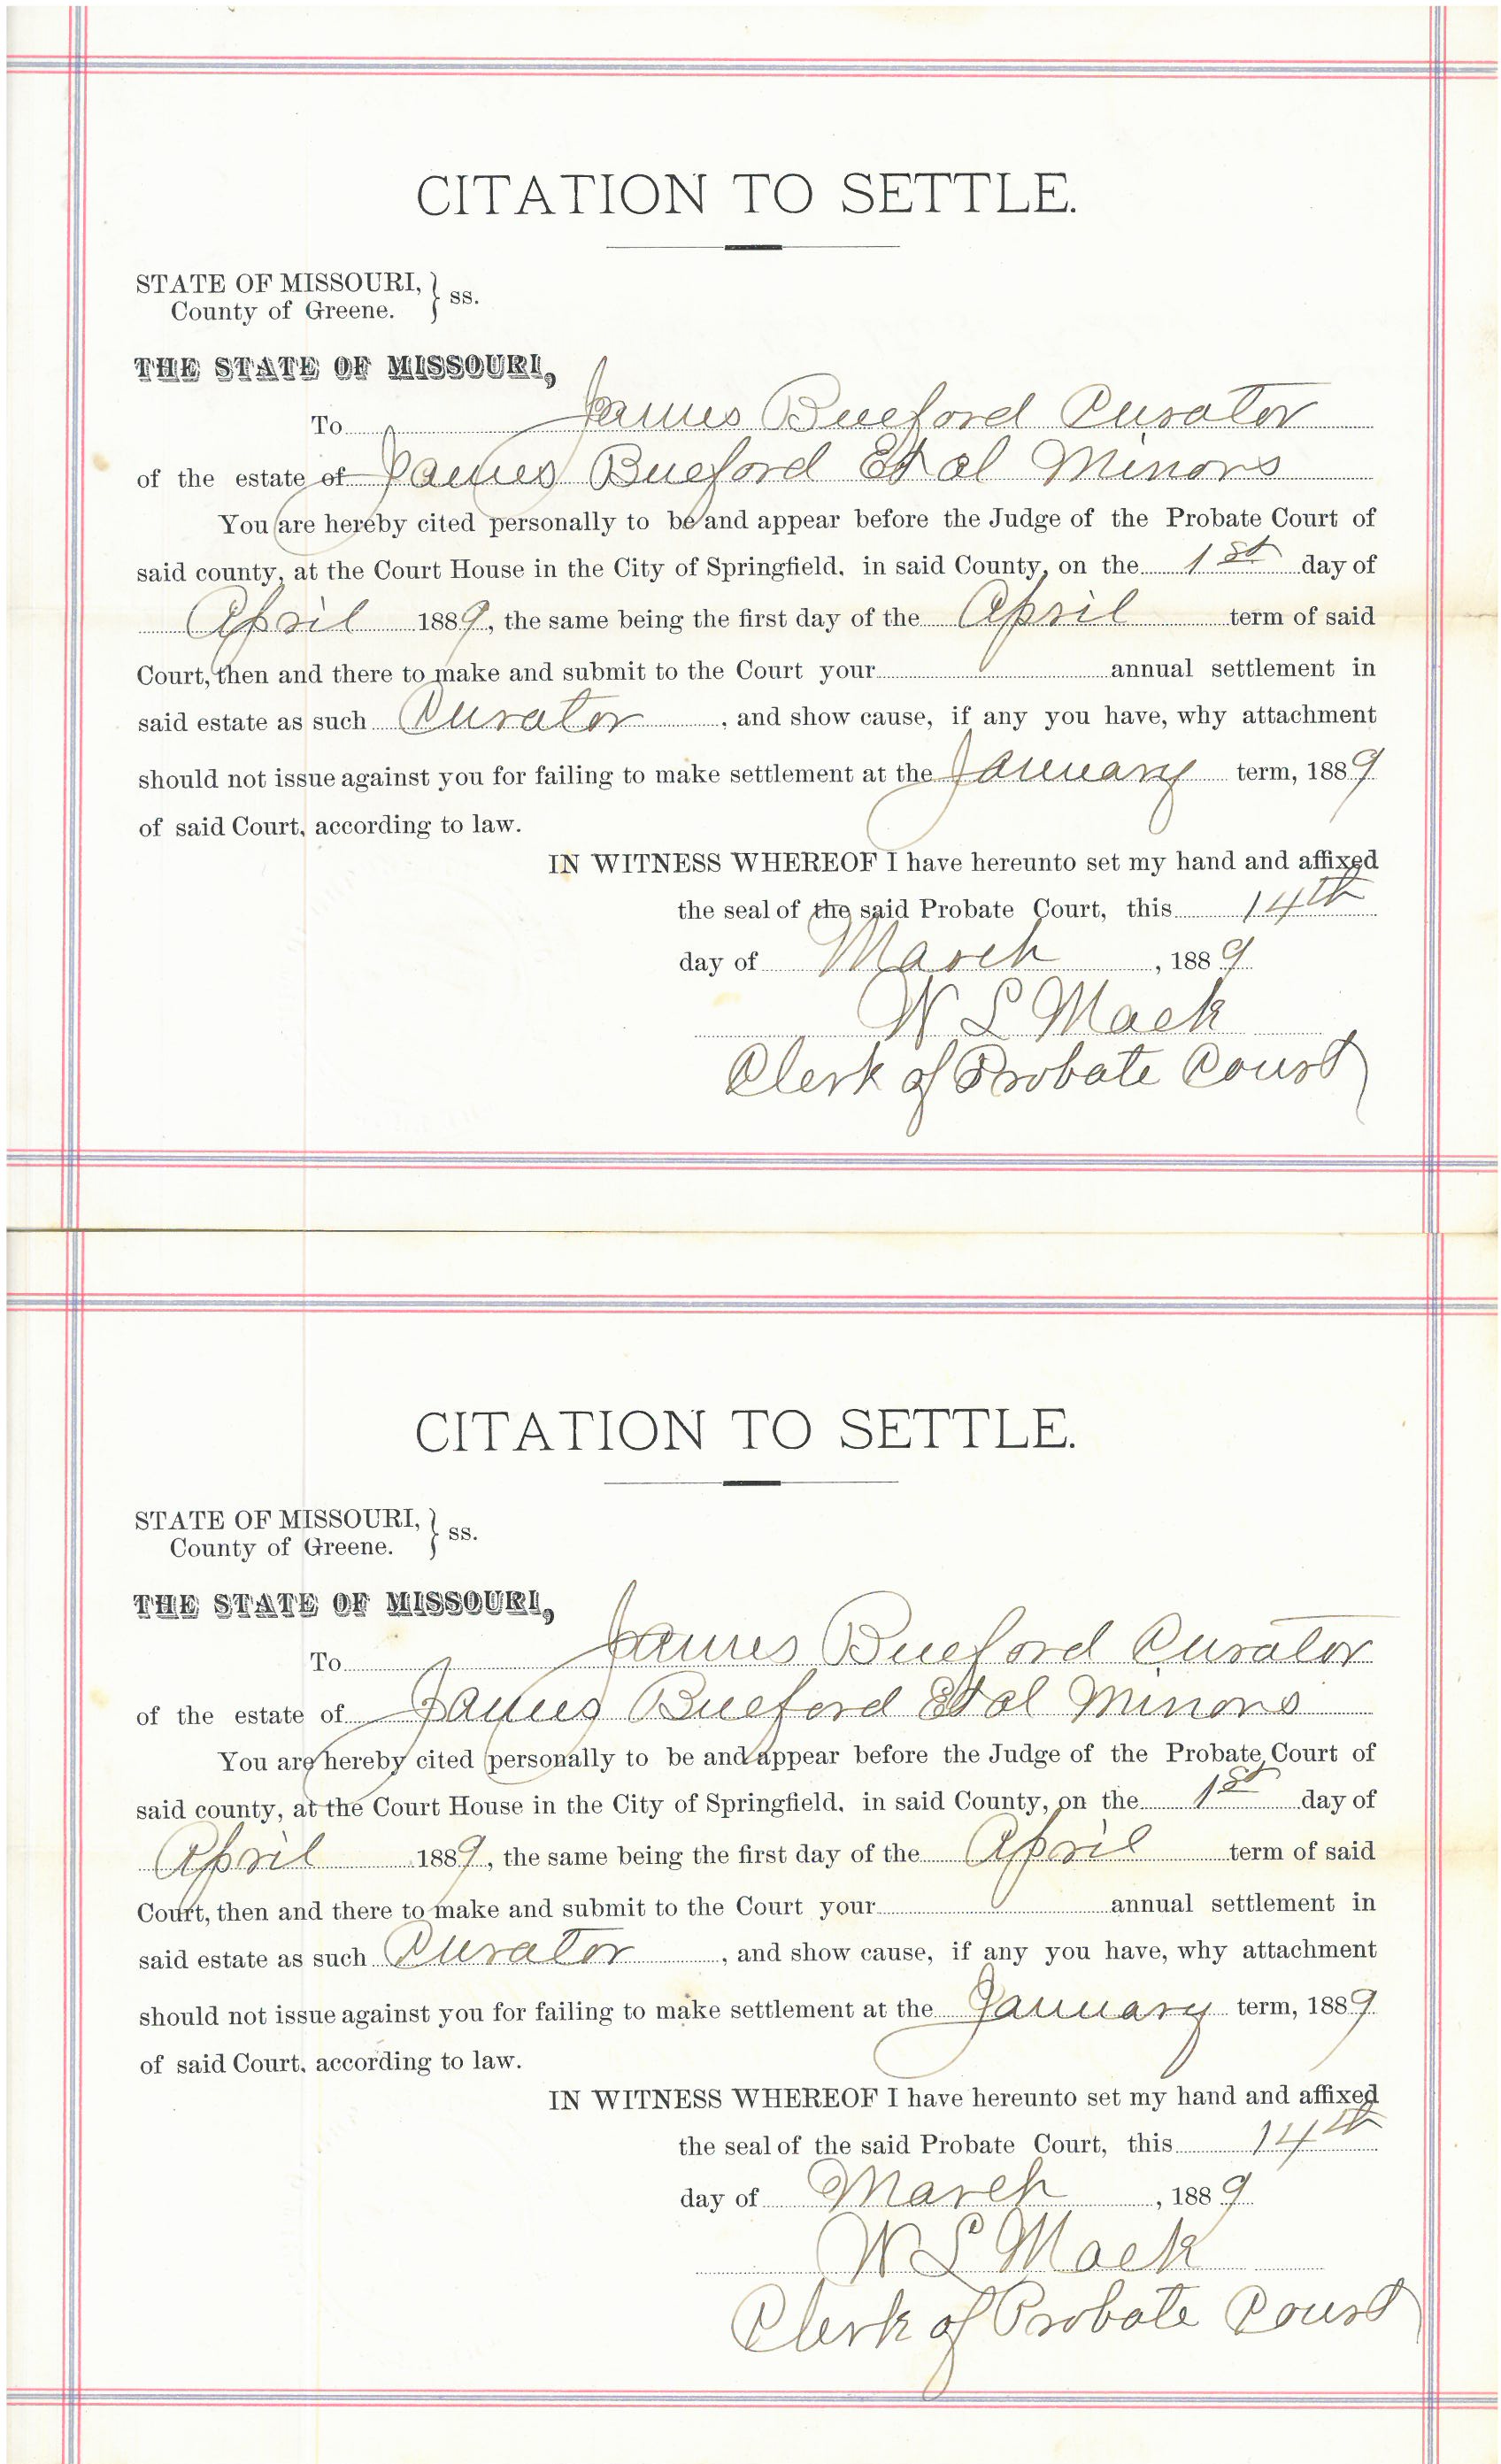 CITATION TO SETTLE.
STATE OF MISSOURI, } ss.
County of Greene.
THE STATE OF MISSOURI,
To James Bueford Curator
of the estate of James Bueford Et al Minors
You are hereby cited personally to be and appear before the Judge of the Probate Court of
said county, at the Court House in the City of Springfield, in said County, on the 1st day of
April 1889, the same being the first day of the April term of said
Court, then and there to make and submit to the Court your annual settlement in
said estate as such Curator, and show cause, if any you have, why attachment
should not issue against you for failing to make settlement at the January term, 1889
of said Court, according to law.
IN WITNESS WHEREOF I have hereunto set my hand and affixed
the seal of the said Probate Court, this 14th
day of March, 1889
W L Mack
Clerk of Probate Court
CITATION TO SETTLE.
STATE OF MISSOURI, } ss.
County of Greene.
THE STATE OF MISSOURI,
To James Bueford Curator
of the estate of James Bueford Et al Minors
You are hereby cited personally to be and appear before the Judge of the Probate Court of
said county, at the Court House in the City of Springfield, in said County, on the 1st day of
April 1889, the same being the first day of the April term of said
Court, then and there to make and submit to the Court your annual settlement in
said estate as such Curator, and show cause, if any you have, why attachment
should not issue against you for failing to make settlement at the January term, 1889
of said Court, according to law.
IN WITNESS WHEREOF I have hereunto set my hand and affixed
the seal of the said Probate Court, this 14th
day of March, 1889
W L Mack
Clerk of Probate Court